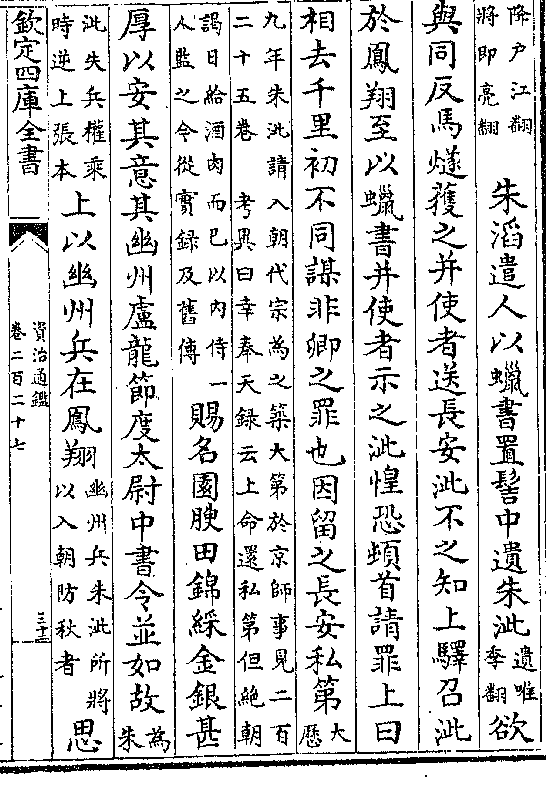 降戶江翻
將即亮翻
朱滔遣人以蠟書置髻中遺朱泚
遺唯
季翻
欲
與同反馬燧獲之并使者送長安泚不之知上驛召泚
於鳳翔至以蠟書并使者示之泚惶恐頓首請罪上曰
相去千里初不同謀非卿之罪也因留之長安私第
大
歷
九年朱泚請入朝代宗為之築大第於京師事見二百
二十五卷 考異曰幸奉天錄云上命還私第但絶朝
謁日給酒肉而已以内侍一
人監之令從實録及舊傳
賜名園腴田錦綵金銀甚
厚以安其意其幽州盧龍節度太尉中書令並如故
為
朱
泚失兵權乘
時逆上張本
上以幽州兵在鳳翔
幽州兵朱泚所將
以入朝防秋者
思
欽定四庫全書
資治通鑑
卷二百二十七